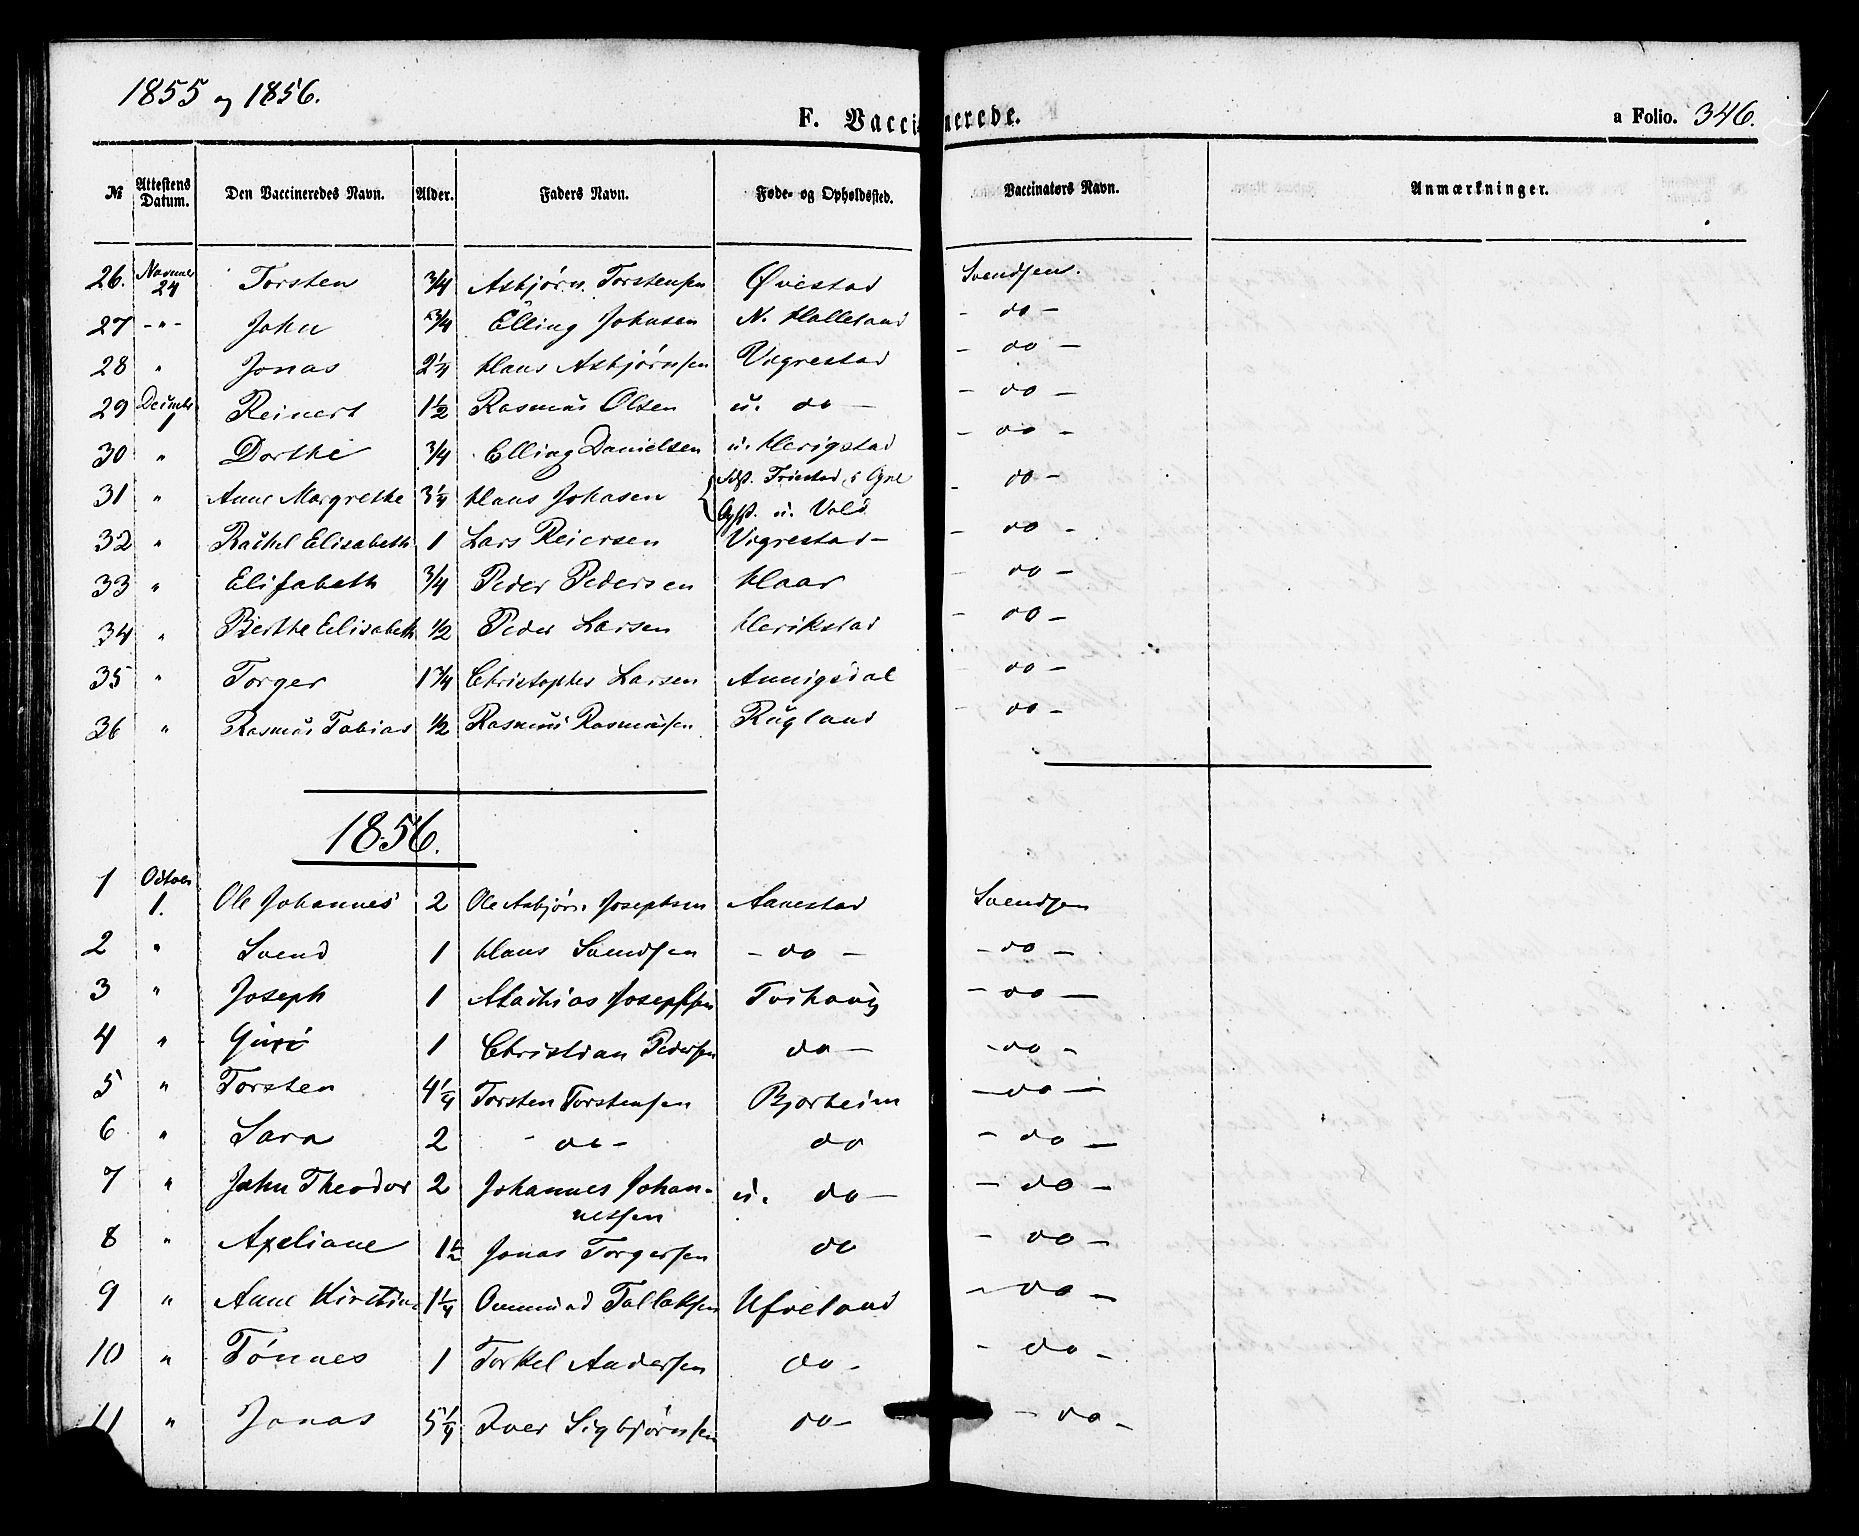 1855 og 1856.
F. Vaccinerede.
a Folio. 346.
№ Attestens Datum. Den Vaccineredes Navn. Alder. Faders Navn. Føde- og Opholdssted. Vaccinators Navn. Anmærkninger.
26. 24 Torsten 3/4 Asbjørn Torstensen Øvestad Svendsen.
27 -"- John 3/4 Elling Johnsen N. Halleland - do -
28 " Jonas 2 1/4 Hans Asbjørnsen Vigrestad - do -
29 Reinert 1 1/2 Rasmus Olsen u. do - - do -
30 " Dorthe 3/4 Elling Danielsen u. Herigstad - do -
31 " Anne Margrethe 3 1/4 Hans Johnsen Friestad i - do -
u.
32 " Rachel Elisabeth 1 Lars Reiersen Vigrestad - - do -
33 " Elisabeth 3/4 Peder Pedersen Haar - do -
34 " Berthe Elisabeth 1/2 Peder Larsen Herikstad - do -
35 " Torger 1 3/4 Christopher Larsen Aunigsdal - do -
36 " Rasmus Tobias 1/2 Rasmus Rasmussen Rugland - do -
1856.
1 1. Ole Johannes 2 Ole Asbjørn Josephsen Aanestad Svendsen
2 " Svend 1 Hans Svendsen - do - - do -
3 " Joseph 1 Mathias Josephsen Tvihoug - do -
4 " Guri 1 Christian Pedersen do - - do -
5 " Torsten 4 1/4 Torsten Torstensen Bjorheim - do -
6 " Sara 2 - do - do - do -
7 " John Theodor 2 Johannes Johan-
nessen u. do - - do -
8 " Axeliane 1 1/2 Jonas Torgersen do - do -
9 " Anne Kirstine 1 1/4 Ommund Tallaksen Ufveland - do -
10 " Tönnes 1 Torkel Andersen do - - do -
11 " Jonas 5 1/4 Iver Sigbjørnsen do - - do -